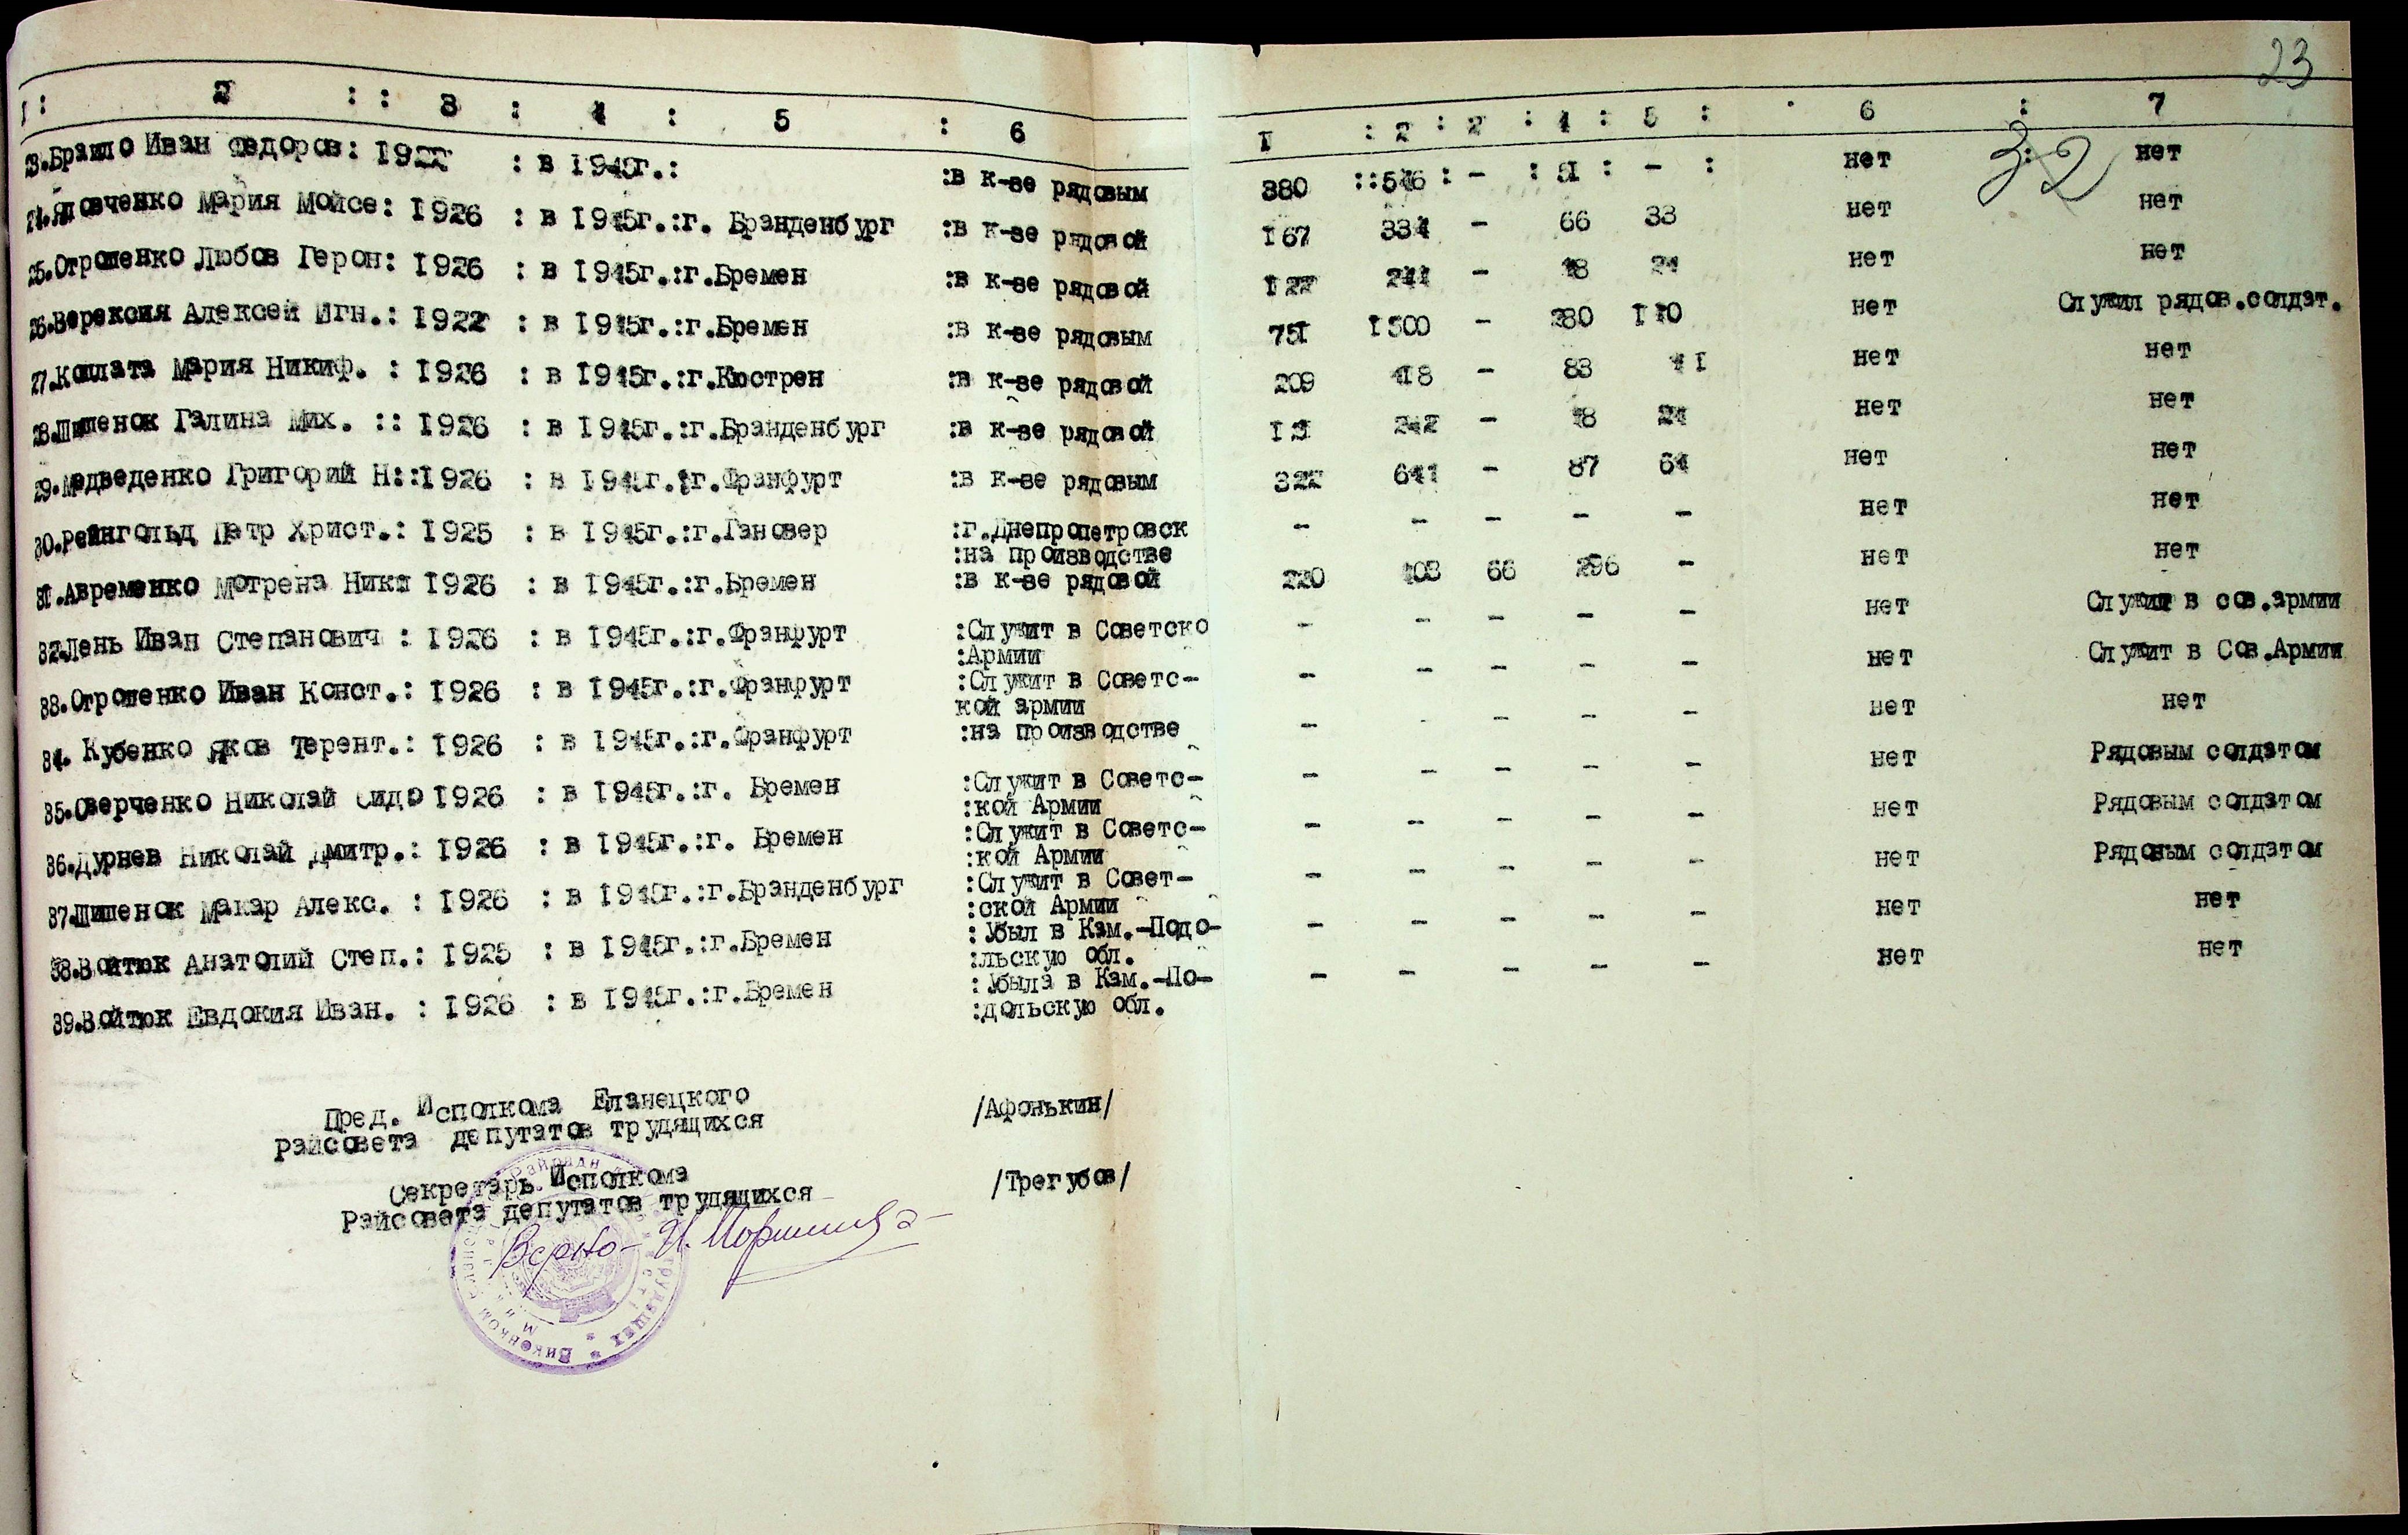 23
I: 2 :: 3 : 4 : 5 : 6 I : 2 : 2 : 4 : 5 : 6 : 7
32
23. Иван Федоров: 1922 : в 1945г.: :в к-зе рядовым 380 ::546 : - : 51 : - : нет : нет
24. Мария Мойсе: 1926 : в 1945г.:г. Бранденбург :в к-зе рядовой 167 334 - 66 33 нет нет
25.Отрошенко Любов Герон: 1926 : в 1945г.:г.Бремен :в к-зе рядовой 122 244 - 48 24 нет нет
26. Алексей Игн.: 1922 : в 1945г.:г.Бремен :в к-зе рядовым 751 1500 - 280 110 нет Служил рядов.солдат.
27. Мария Никиф. : 1926 : в 1945г.:г.Кюстрен :в к-зе рядовой 209 418 - 83 41 нет нет
28.Шишенок Галина Мих. :: 1926 : в 1945г.:г.Бранденбург :в к-зе рядовой 242 - 48 24 нет нет
29.Медведенко Григорий Н::1926 : в 1945г.:г.Франфурт :в к-зе рядовым 322 641 - 87 64 нет нет
30.Рейнгольд Петр Христ.: 1925 : в 1945г.:г.Гановер :г.Днепропетровск - - - - - нет нет
:на производстве
31.Авременко Мотрена Ники 1926 : в 1945г.:г.Бремен :в к-зе рядовой 220 403 66 296 - нет нет
32.Лень Иван Степанович : 1926 : в 1945г.:г.Франфурт :Служит в Советско - - - - - нет Служит в сов.армии
:Армии
33.Отрошенко Иван Конст.: 1926 : в 1945г.:г.Франфурт :Служит в Советс- - - - - - нет Служит в Сов.Армии
кой армии
34. Кубенко Яков Терент.: 1926 : в 1945г.:г.Франфурт :на производстве - - - - - нет нет
35.Оверченко Николай Сидо 1926 : в 1945г.:г. Бремен :Служит в Советс- - - - - - нет Рядовым солдатом
:кой Армии
36.Дурнев Николай Дмитр.: 1926 : в 1945г.:г. Бремен :Служит в Советс- - - - - - нет Рядовым солдатом
:кой Армии
37.Шишенок Макар Алекс. : 1926 : в 1945г.:г.Бранденбург :Служит в Совет- - - - - - нет Рядовым солдатом
:ской Армии
38.Войтюк Анатолий Степ.: 1925 : в 1945г.:г.Бремен :Убыл в Кам.-Подо- - - - - - нет нет
:льскую обл.
39.Войтюк Евдокия Иван. : 1926 : в 1945г.:г.Бремен :Убыла в Кам.-По- - - - - - нет нет
:дольскую обл.
Пред. Исполкома Еланецкого
Райсовета депутатов трудящихся /Афонькин/
Секретарь Исполкома
Райсовета депутатов трудящихся /Трегубов/
Верно-